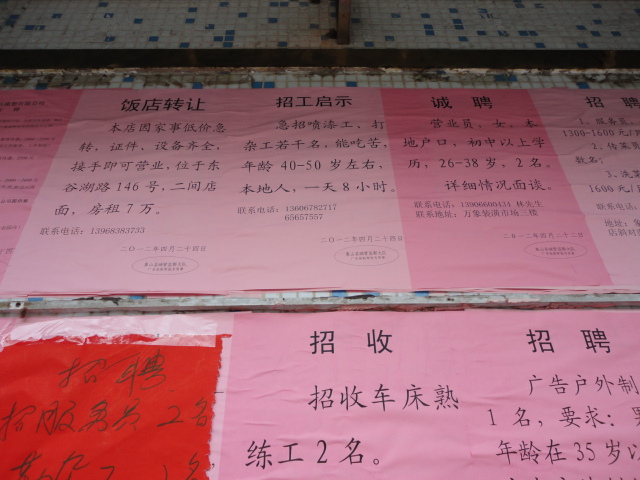 饭店转让
本店因家事低价急
转、证件、设备齐全,
接手即可营业,位于东
谷湖路 146 号,二间店
面,房租 7 万。
联系电话:13968383733
二〇一二年四月二十四日
招工启示
急招喷漆工、打
杂工若干名,能吃苦,
年龄 40-50 岁左右,
本地人,一天 8 小时。
联系电话:13606782717
65657557
二〇一二年四月二十四日
诚 聘
营业员,女,本
地户口,初中以上学
历,26-38 岁,2 名。
详细情况面谈。
联系电话:13906600434 林先生
联系地址:万象装潢市场三楼
二〇一二年四月二十二日
招 聘
1、服务员
1300-1600元/
2、传菜员
数名;
3、洗菜
1600元/
招 聘
招服务员 2名
招 收
招收车床熟
练工 2 名。
招 聘
广告户外制
1 名,要求:男
年龄在 35 岁以